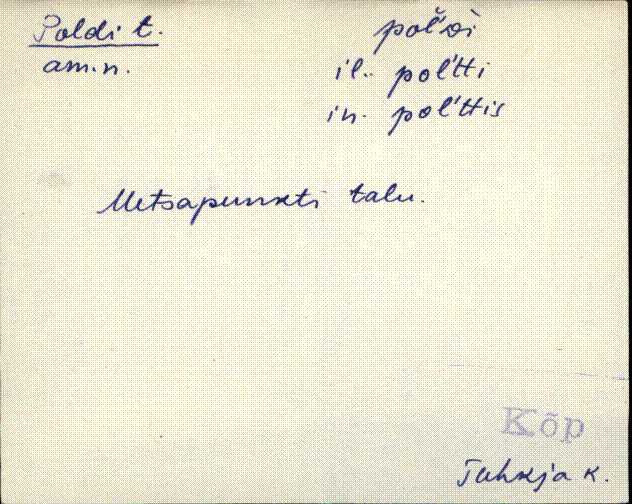 Poldi t.
am.n.
pol̆'di
il. pol'tti
in. pol'ttis
Metsapunkti talu.
Kõp
Tuhkja k.